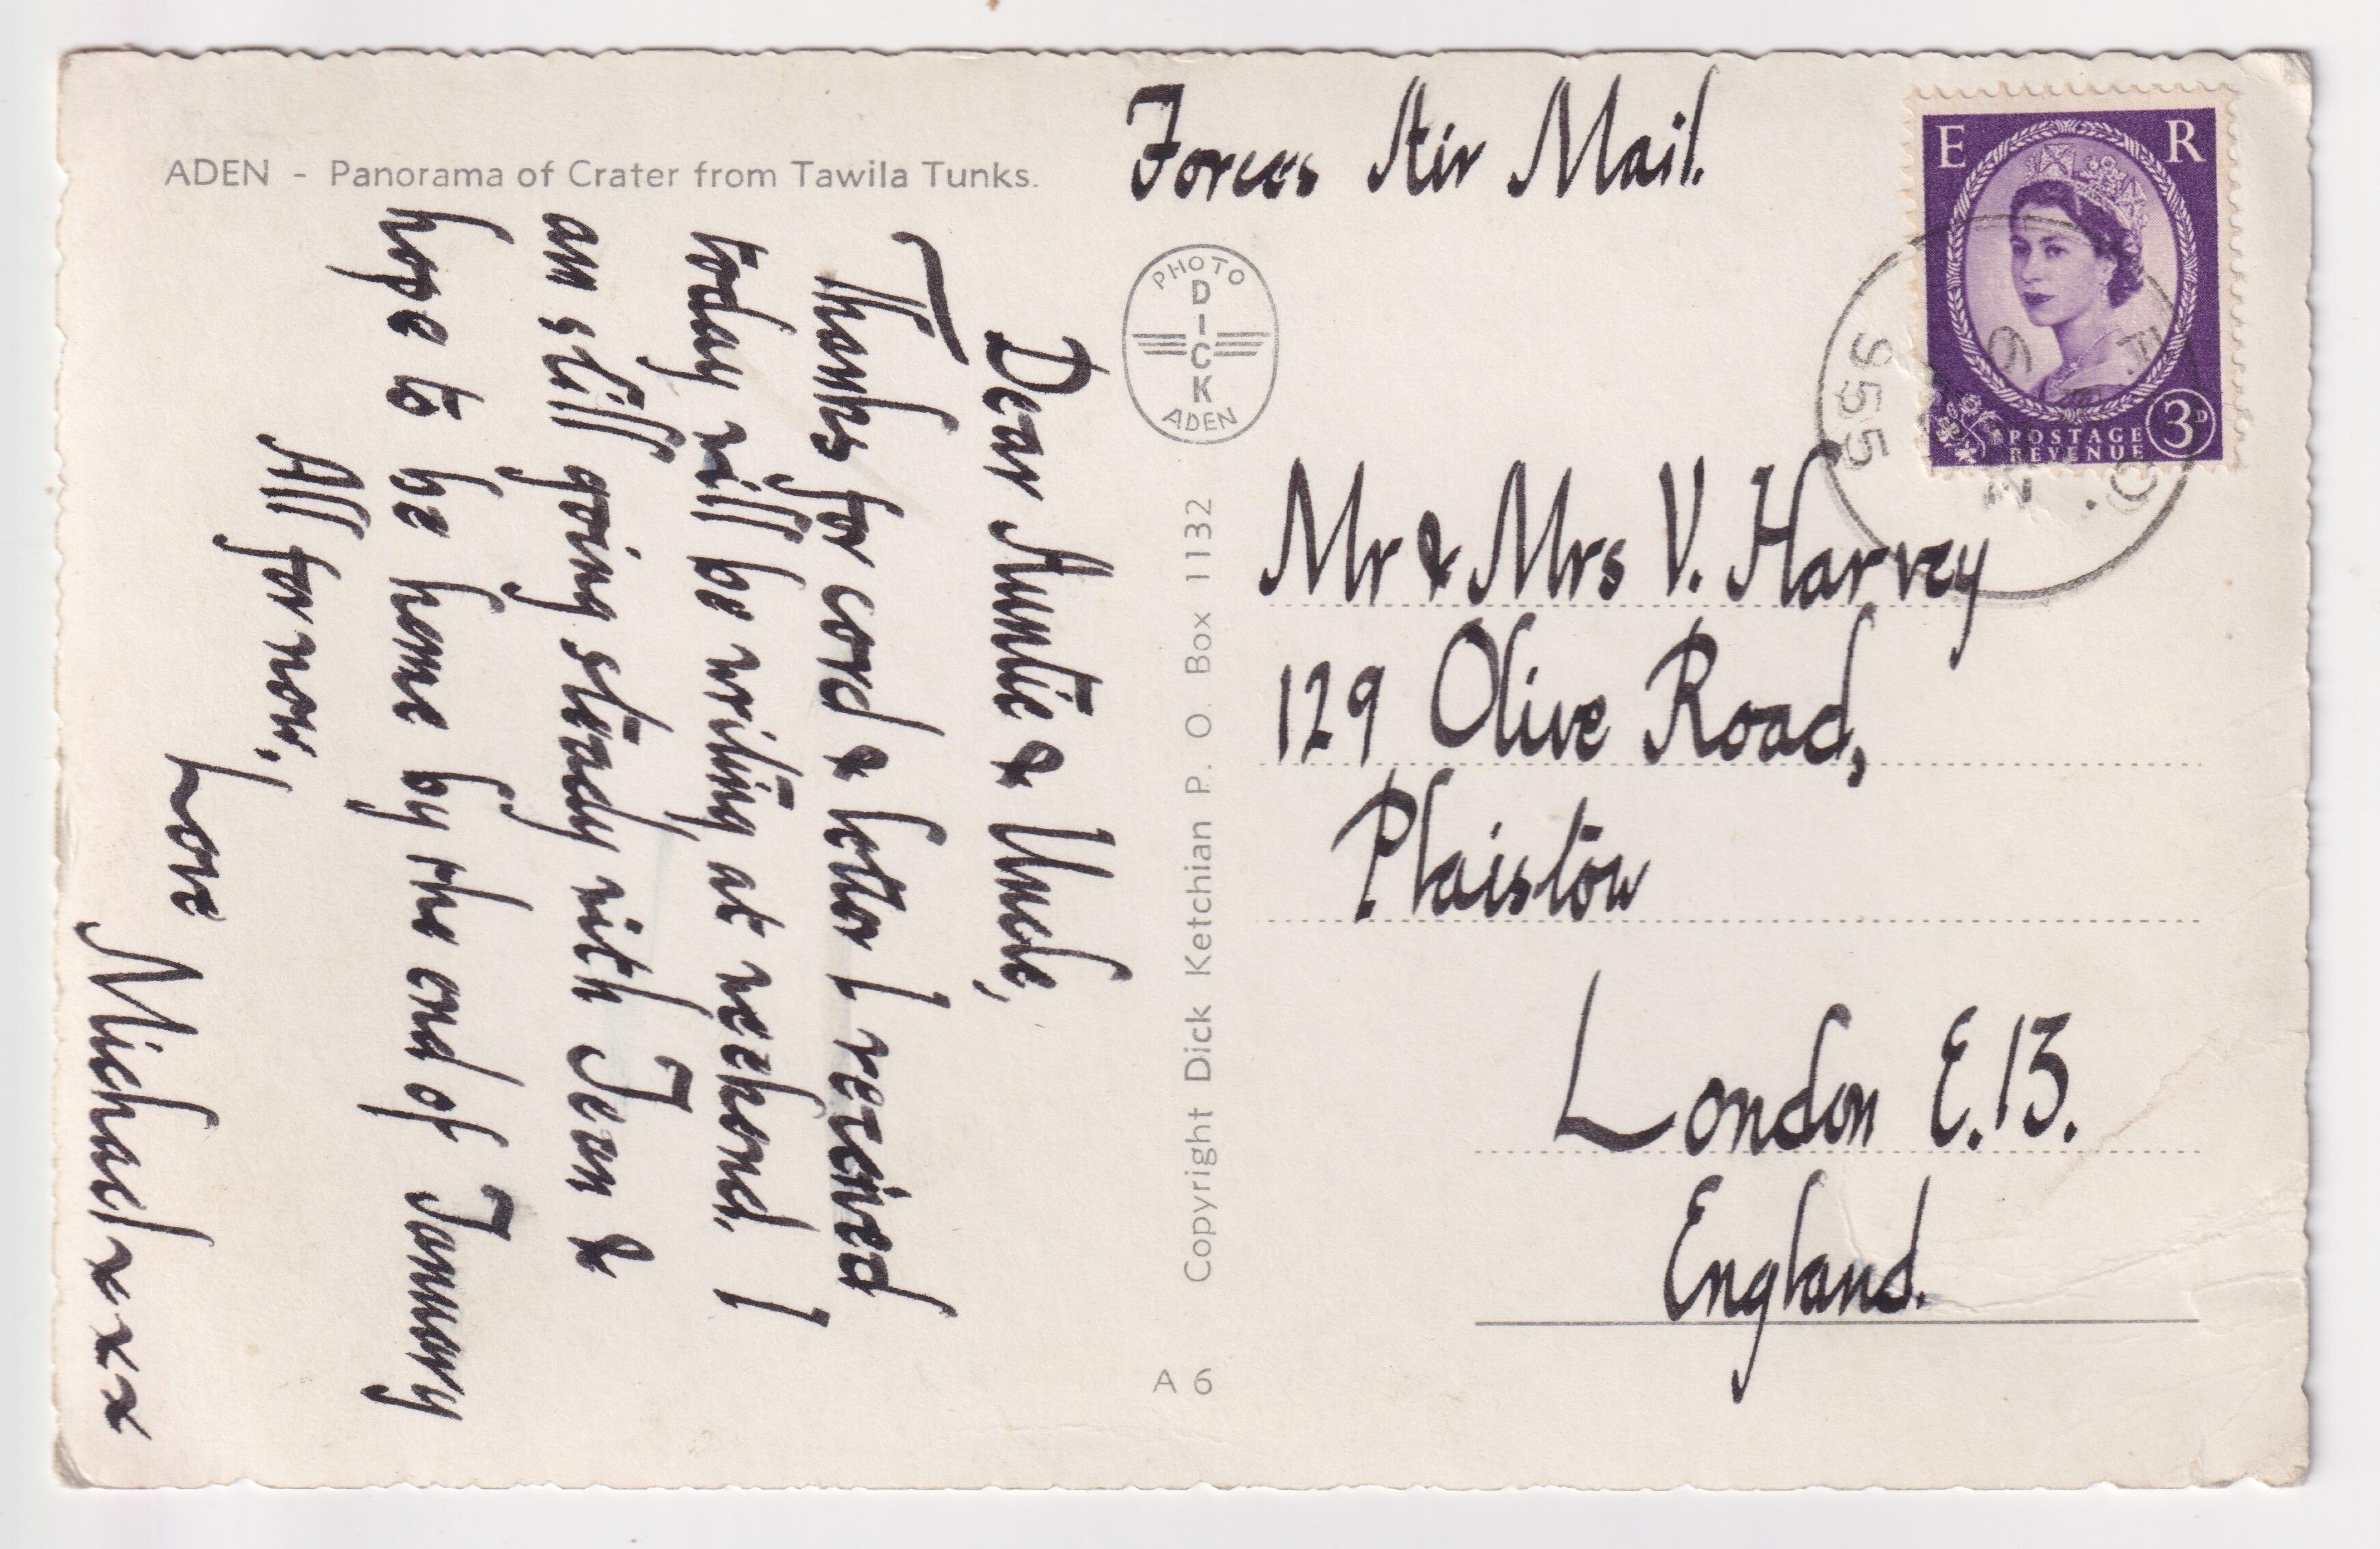 ADEN - Panorama of Crater from Tawila Tunks.
Forces Air Mail.
E R
3D
POSTAGE
REVENUE
F. P.O.
955
6
PHOTO
DICK
ADEN
Dear Auntie & Uncle,
Thanks for card & letter I received
today will be writing at weekend. I
am still going steady with Jean &
hope to be home by the end of January
All for now,
Love
Michael xxx
Copyright Dick Ketchian P. O. Box 1132
A 6
Mr & Mrs V. Harvey
129 Olive Road,
Plaistow
London E.13.
England.